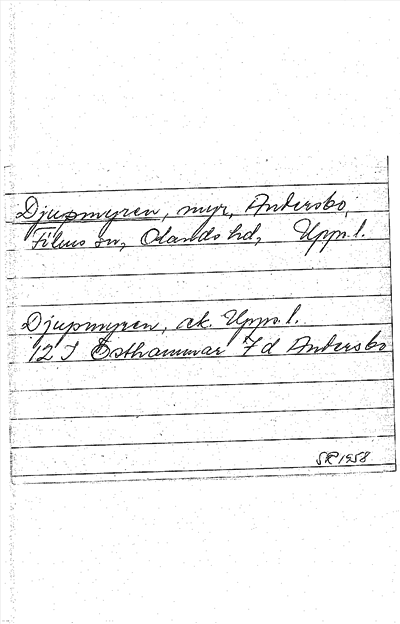 Djupmyren, myr, Andersbo,
Films sn, Olands hd, Upps. l.
Djupmyren, ek. Upps. l.
12 I Östhammar 7 d Andersbo
SR 1958